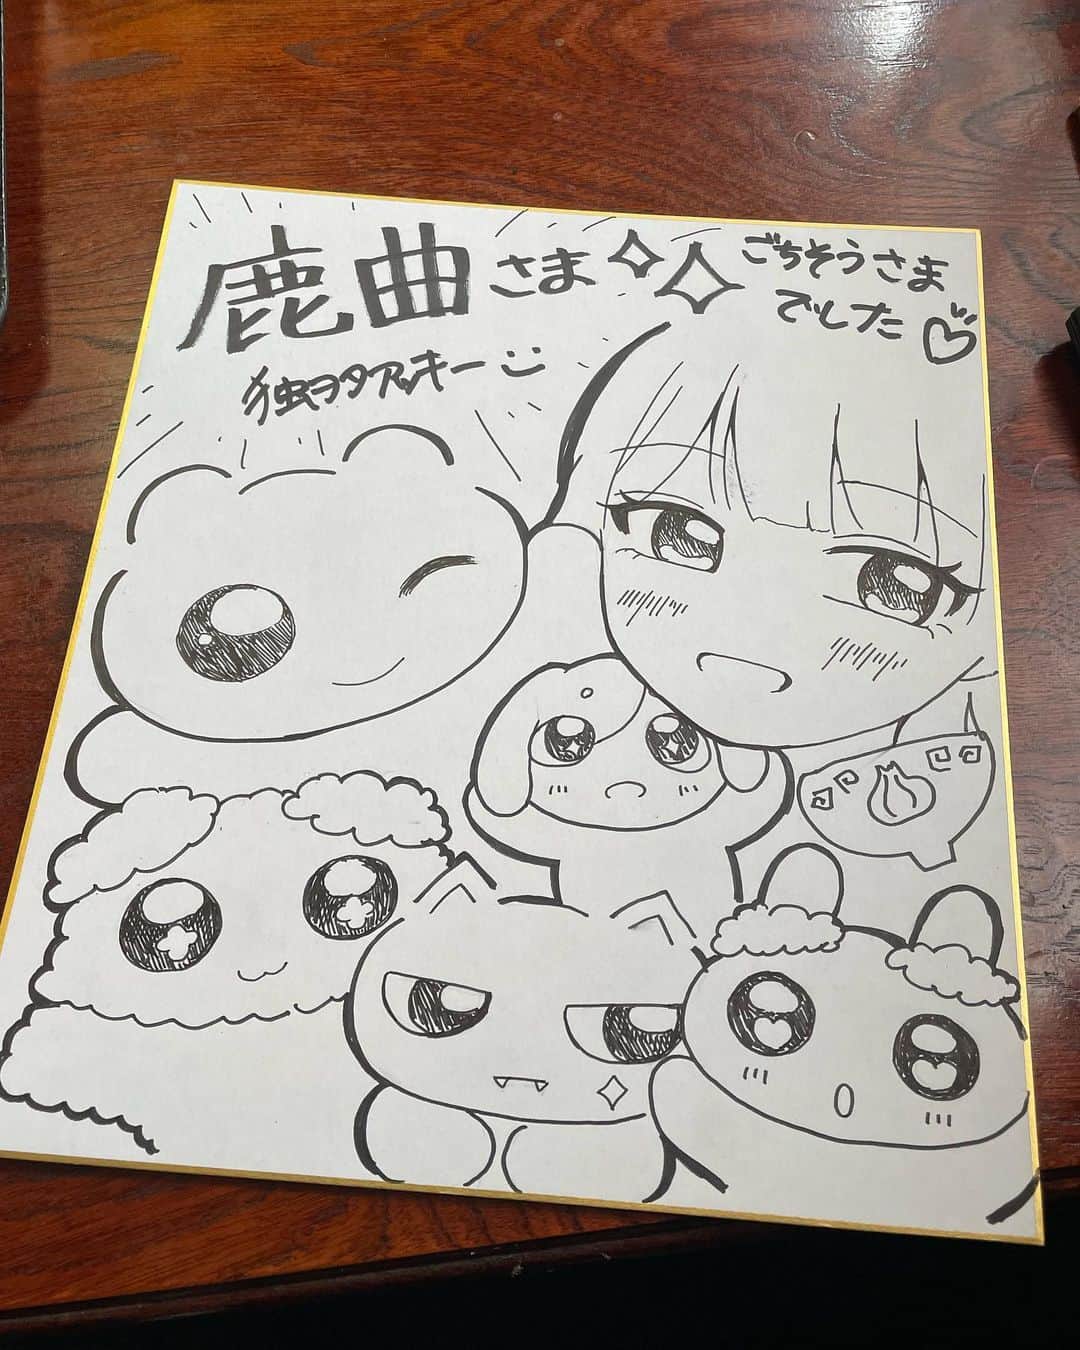 鹿曲さま
ごちそうさま
でした
独ヲタアッキー